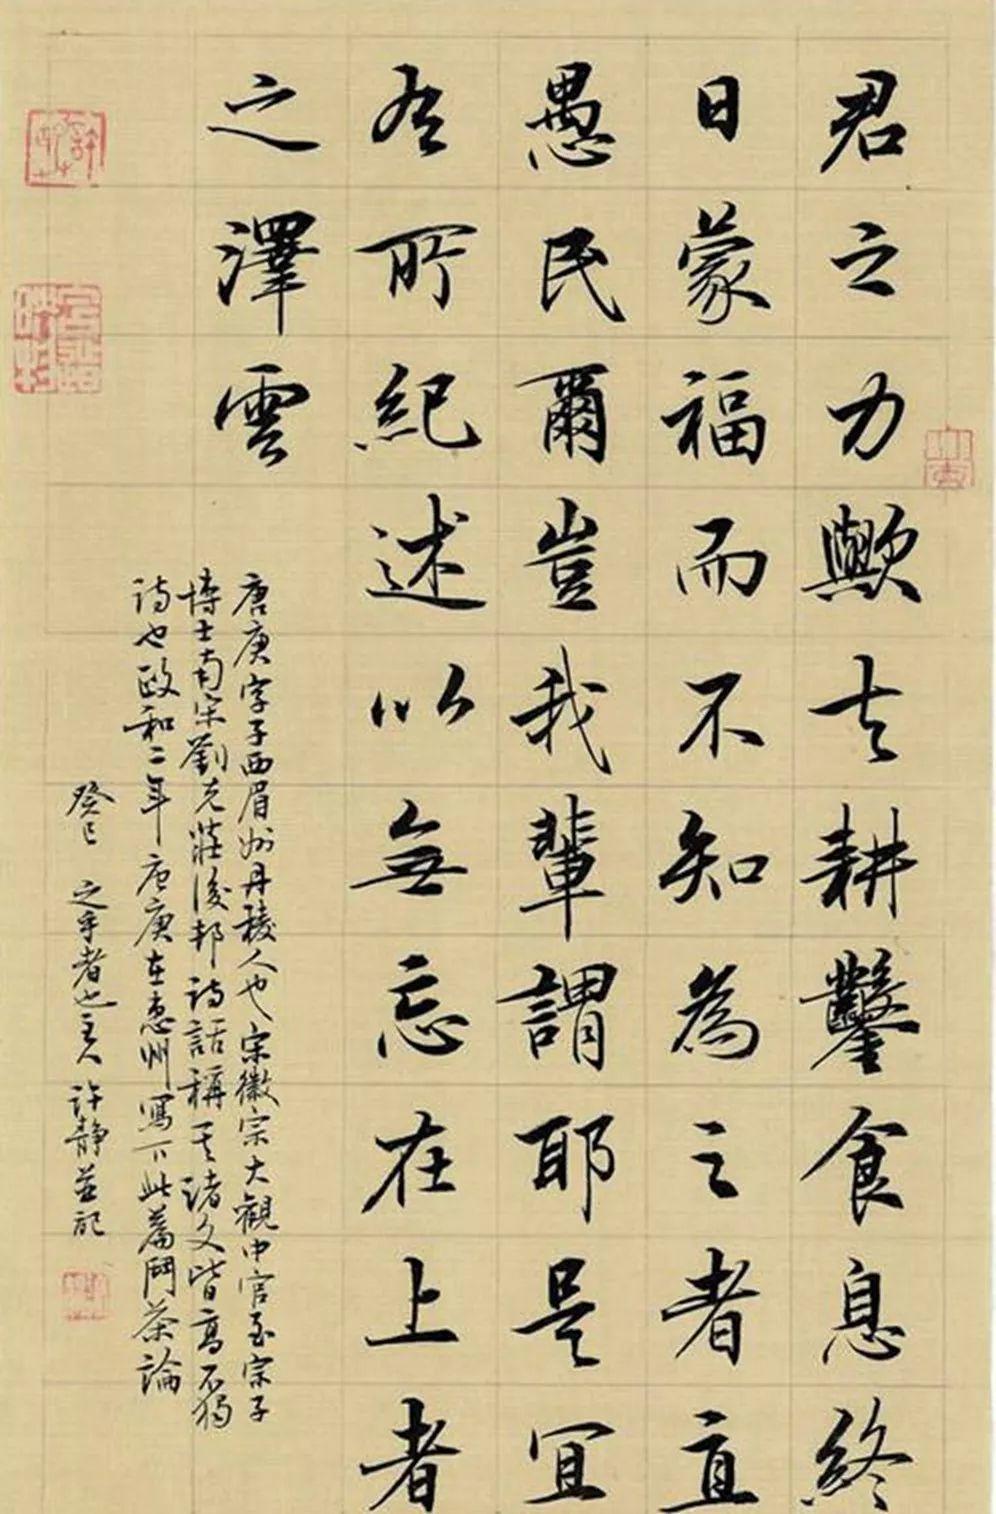 君之力歟夫耕鑿食息終
日蒙福而不知為之者直
愚民爾豈我輩謂耶是宜
有所紀述以無忘在上者
之澤雲
唐庚字子西眉州丹稜人也宋徽宗大觀中官至宗子
博士南宋劉克莊後邨詩話稱其諸文皆高不獨
詩也政和二年唐庚在惠州寫下此篇鬥茶論
癸巳 之乎者也主人許靜並記